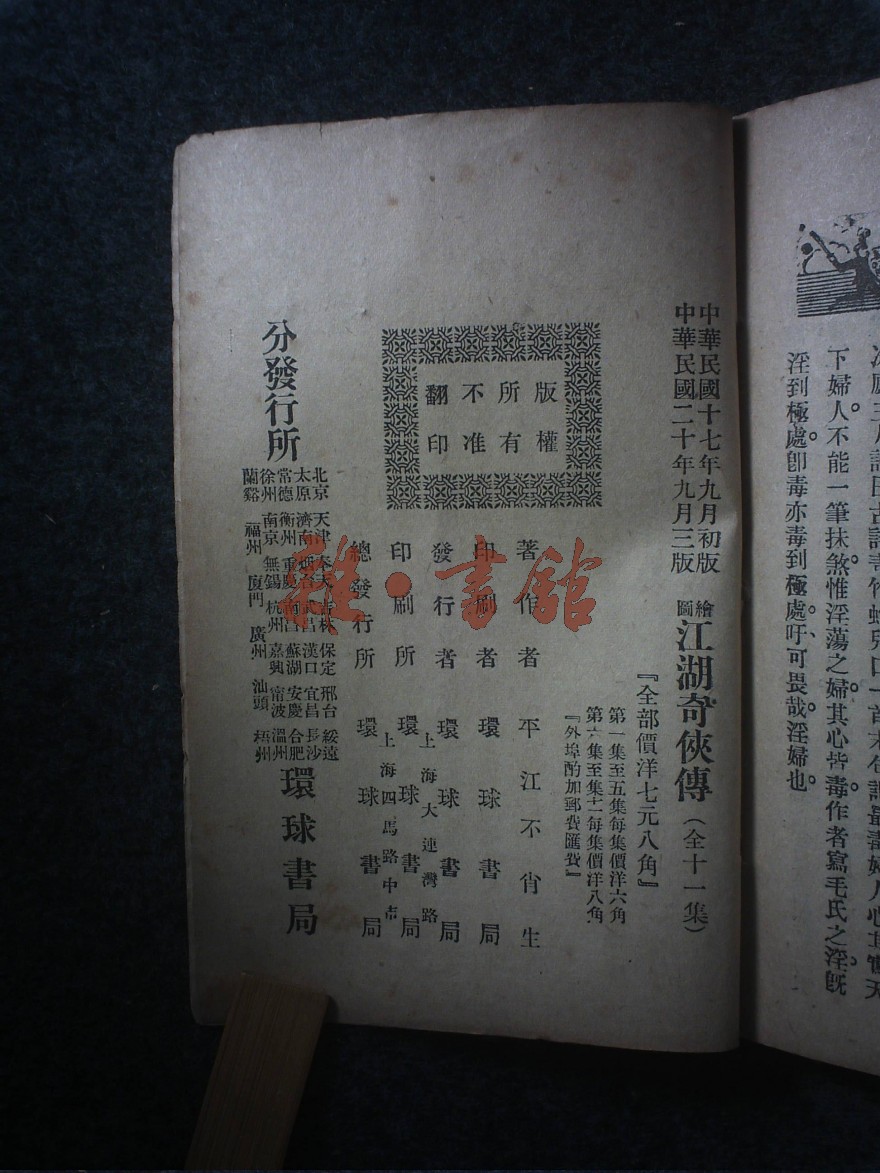 下婦人。不能一筆抹煞惟淫蕩之婦其心皆毒。作者寫毛氏之淫。既
淫到極處。卽毒亦毒到極處。吁、可畏哉。淫婦也。
中華民國十七年九月初版
中華民國二十年九月三版
繪圖江湖奇俠傳（全十一集）
『全部價洋七元八角』
第一集至五集每集價洋六角
第六集至十一每集價洋八角
『外埠酌加郵費匯費』
版權
所有
不准
翻印
著作者 平江不肖生
印刷者 環球書局
發行者 環球書局
上海大連灣路
印刷所 環球書局
上海四馬路中市
總發行所 環球書局
分發行所
北京 天津 奉天 吉林 保定 邢台 綏遠
太原 濟南 烟台 武昌 漢口 宜昌 長沙
常德 衡州 重慶 南昌 蘇湖 安慶 合肥
徐州 南京 無錫 杭州 嘉興 甯波 溫州
蘭谿 福州 廈門 廣州 汕頭 梧州
環球書局
雜·書館